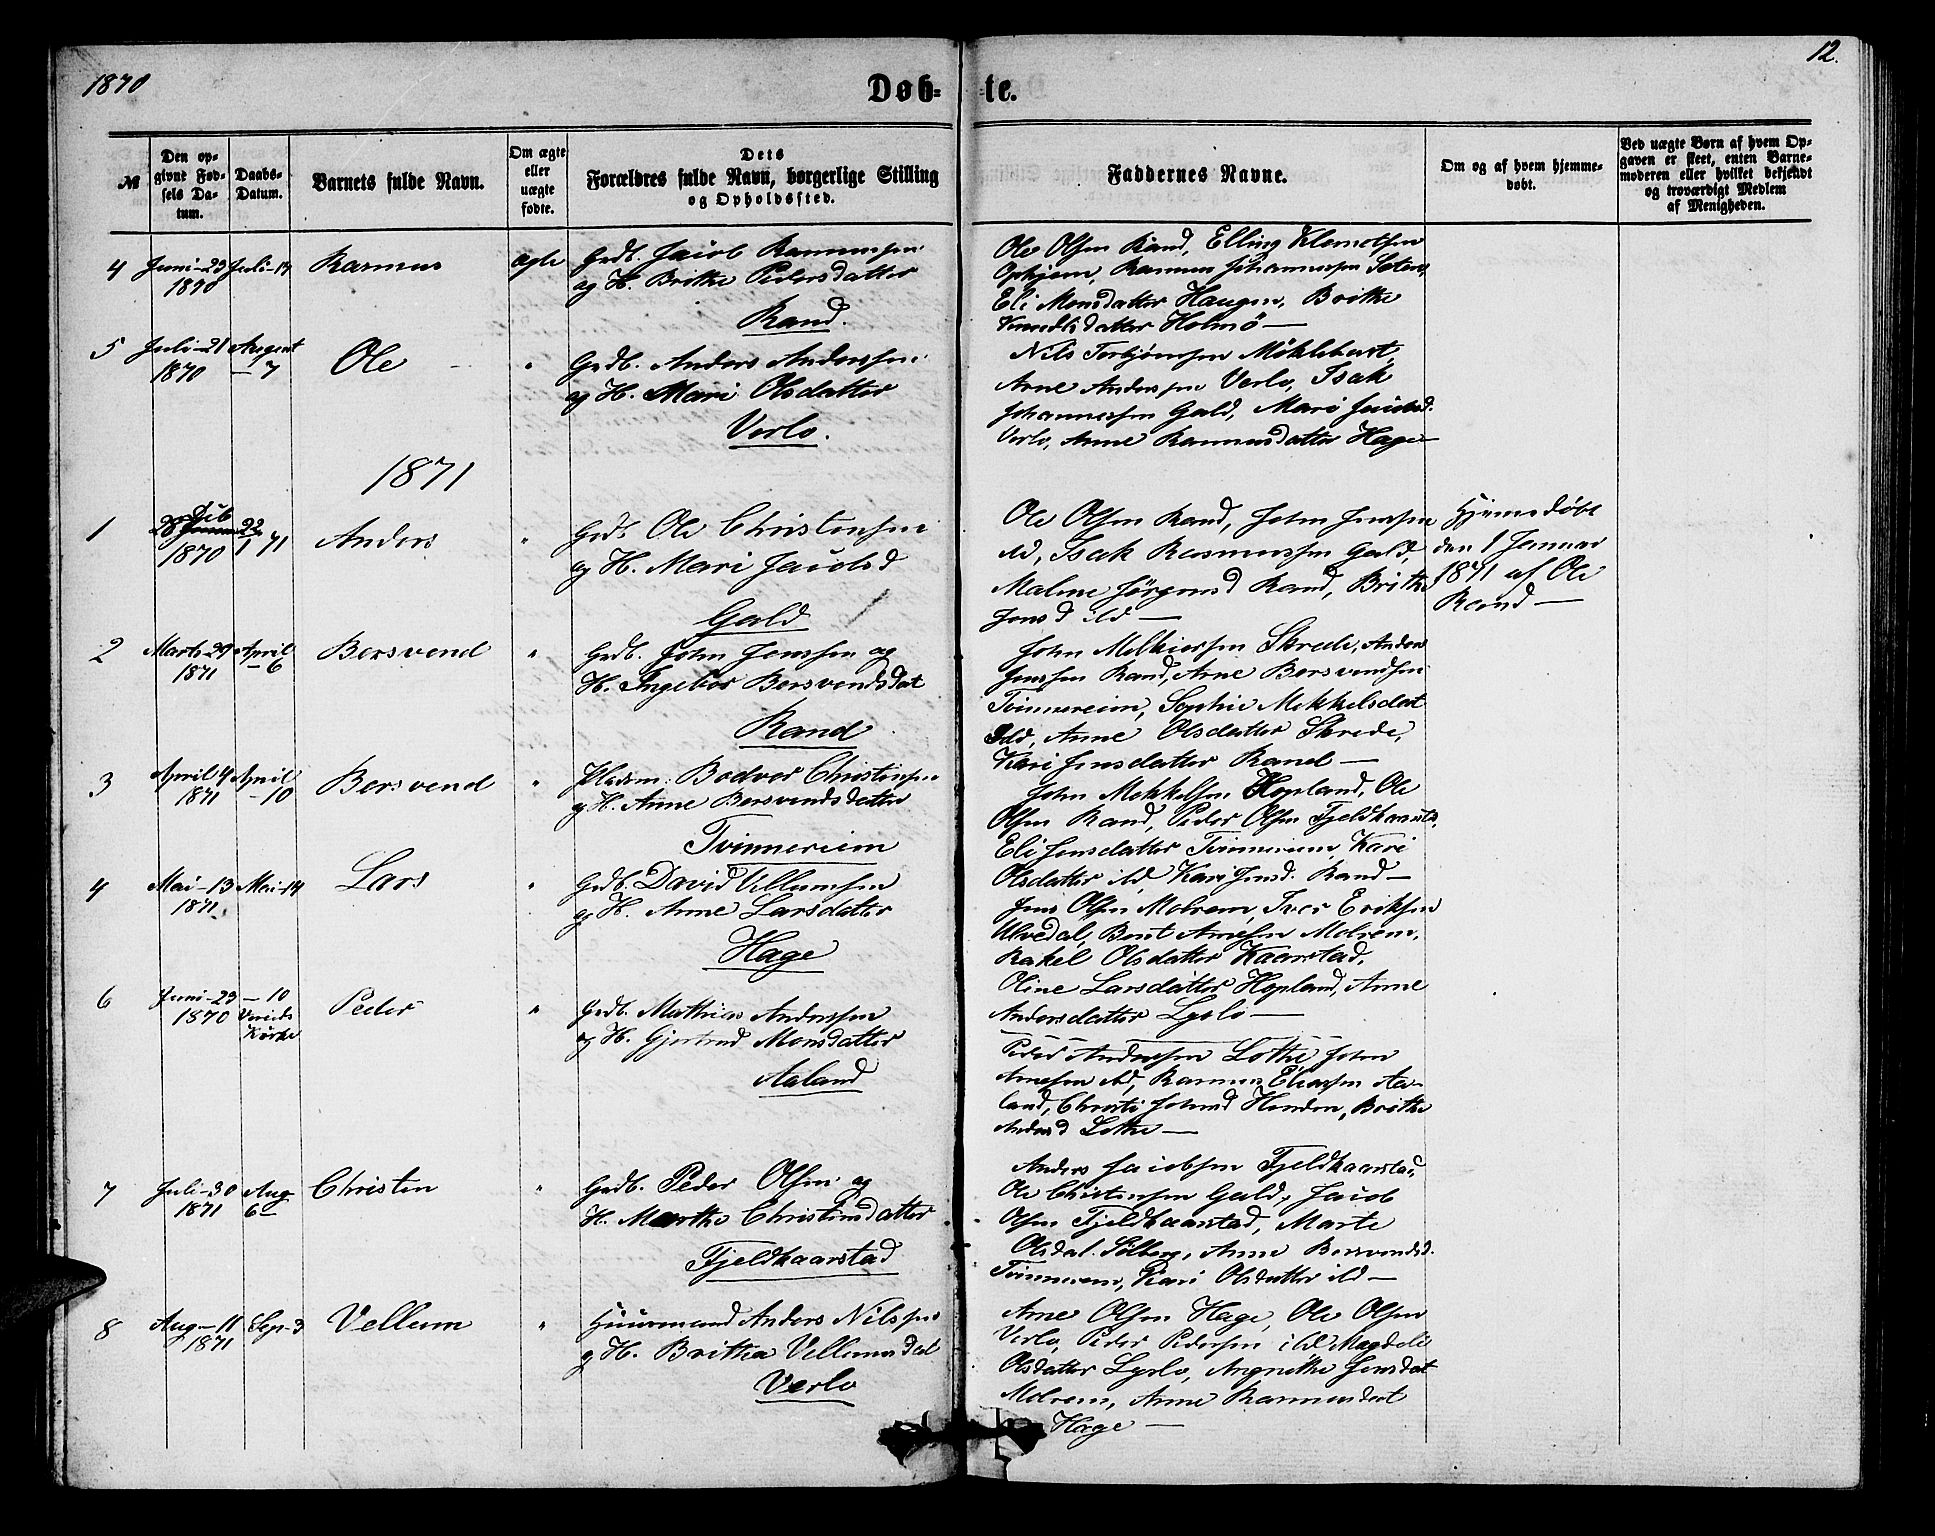 1870
Døb-
te.
12.
№
Den op-
givne Fød-
sels Da-
tum.
Daabs-
Datum.
Barnets fulde Navn.
Om ægte
eller
uægte
fødte.
Dets
Forældres fulde Navn, borgerlige Stilling
og Opholdssted.
Faddernes Navne.
Om og af hvem hjemme-
døbt.
Ved uægte Børn af hvem Op-
gaven er skeet, enten Barne-
moderen eller hvilket bekjendt
og troværdigt Medlem
af Menigheden.
4 Juni-23 Juli-14 Rasmus ægte Grdb. Jacob Rasmussen
1870 og H. Brithe Pedersdatter
Rand.
Ole Olsen Rand, Elling Klemetsen
Opheim, Rasmus Johannessen
Eli Monsdatter Haugen, Brithe
Knudtsdatter Holmö —
5 Juli-21 August Ole " Grdb. Anders Anderssen
1870 — 7 og H. Mari Olsdatter
Verlo.
Nils Torbjörnsen Möklebust,
Arne Anderssen Verlo, Isak
Johannessen Gald, Mari Jacobsd.
Verlo, Anne Rasmusdatter Hage —
1871
1 28 22 Anders " Grdb. Ole Christensen
1870 1 71 og H. Mari Jacobsd
Gald
Ole Olsen Rand, John Jenssen
ild, Isak Rasmussen Gald,
Malene Jörgensd Rand, Brithe
Jensd ild —
Hjemmedøbt
den 1 Januar
1871 af Ole
Rand —
2 Marts-29 April Bersvend " Grdb. John Jenssen og
1871 — 6 H. Ingebor Bersvendsdat
Rand
John Melkiorssen Skrede, Anders
Jenssen Rand, Arne Bersvendsen
Tvinnereim, Sophie Mekkelsdat
Ild, Anne Olsdatter Skrede,
Kari Jensdatter Rand —
3 April 4 April Bersvend " Bodvor Christensen
1871 — 10 og H. Anne Bersvendsdatter
Tvinnereim
John Mekkelsen Hopland, Ole
Olsen Rand, Peder Olsen Fjeldkaarstad,
Eli Jensdatter Tvinnereim, Kari
Olsdatter ild, Kari Jensd. Rand —
4 Mai-13 Mai-14 Lars " Grdb. David Vellumsen
1871 og H. Anne Larsdatter
Hage
Jens Olsen Molrem, Iver Eriksen
Ulvedal, Bent Arnesen Molrem,
Rakel Olsdatter Kaarstad,
Oline Larsdatter Hopland, Anne
Andersdatter Lyslo —
6 Juni-23 — 10 Peder " Grdb. Mathias Anderssen
1870 Vereids og H. Gjertrud Monsdatter
Kirke
Aaland
Peder Anderssen Lothe, John
Arnesen ild, Rasmus Eliassen Aa-
land, Christi Johnsd Henden, Brithe
Andersd Lothe —
7 Juli-30 Aug Christen " Grdb. Peder Olsen og
1871 6 H. Marthe Christensdatter
Fjeldkaarstad
Anders Jacobsen Fjeldkaarstad,
Ole Christensen Gald, Jacob
Olsen Fjeldkaarstad, Marte
Olsdat. Solberg, Anne Bersvendsd.
Tvinnerem, Kari Olsdatter ild —
8 Aug-11 Sep-3 Vellum " Huusmand Anders Nilssen
1871 og H. Brithe Vellumsdat
Verlo
Arne Olsen Hage, Ole Olsen
Verlo, Peder Pedersen ild, Magdeli
Olsdatter Lyslo, Jensdat
Molrem, Anne Rasmusdat
Hage —